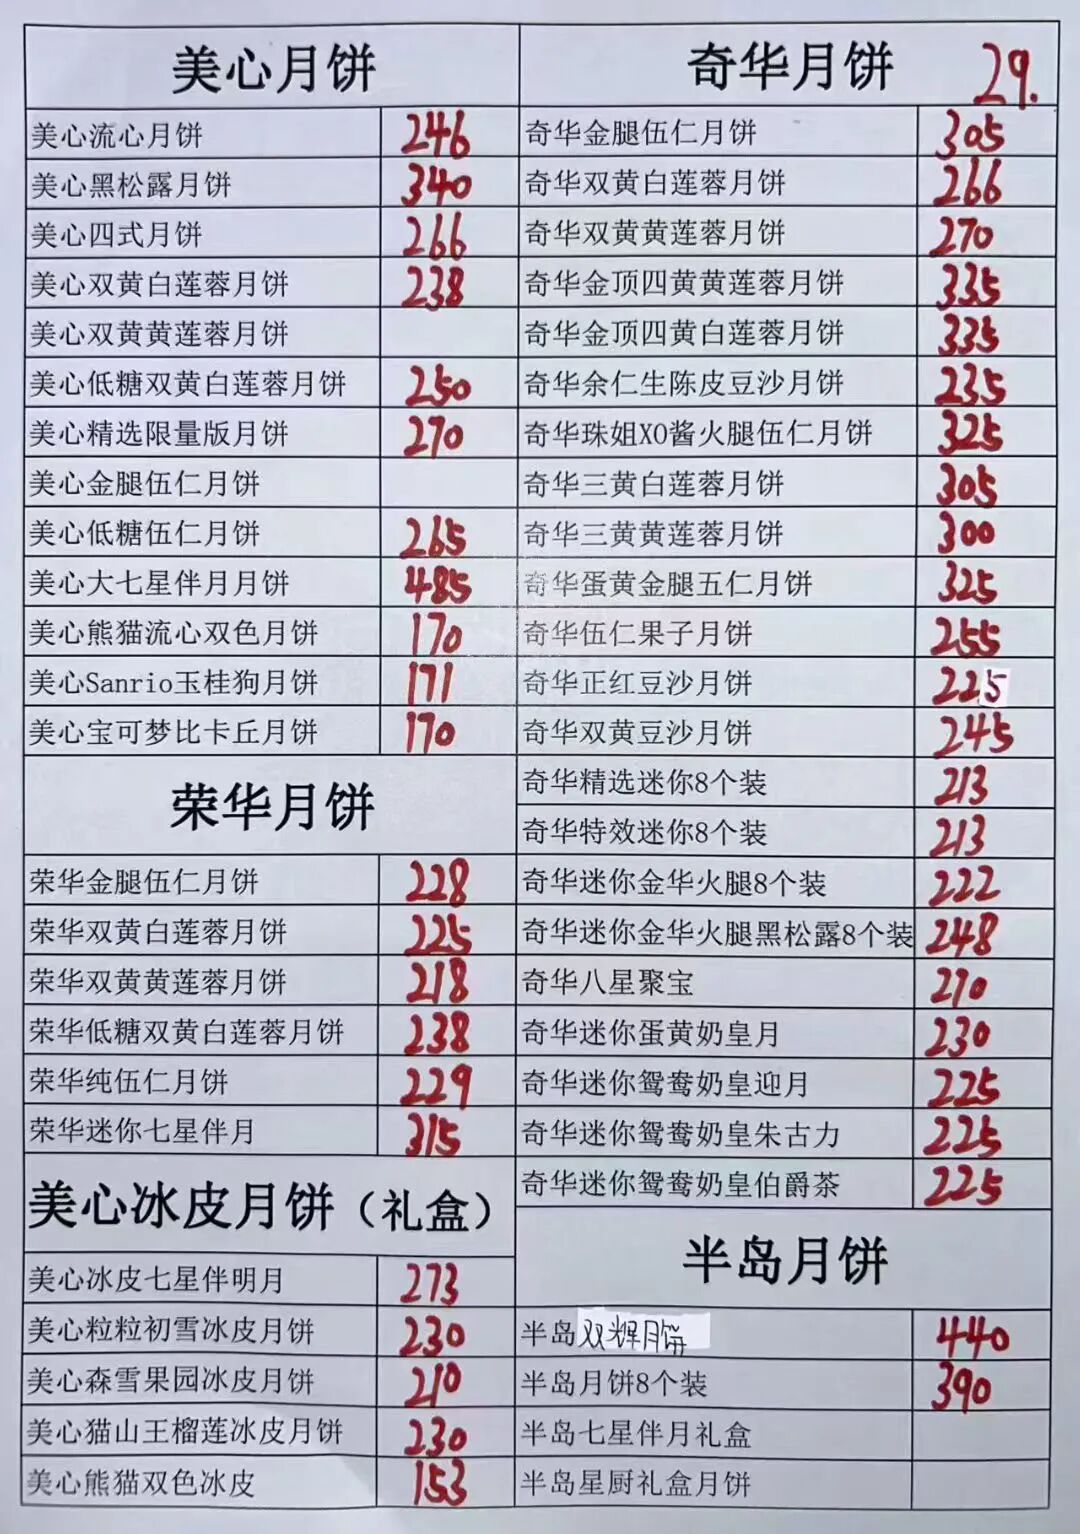 美心月饼
美心流心月饼 246
美心黑松露月饼 340
美心四式月饼 266
美心双黄白莲蓉月饼 238
美心双黄黄莲蓉月饼
美心低糖双黄白莲蓉月饼 250
美心精选限量版月饼 270
美心金腿伍仁月饼
美心低糖伍仁月饼 265
美心大七星伴月月饼 485
美心熊猫流心双色月饼 170
美心Sanrio玉桂狗月饼 171
美心宝可梦比卡丘月饼 170
荣华月饼
荣华金腿伍仁月饼 228
荣华双黄白莲蓉月饼 225
荣华双黄黄莲蓉月饼 218
荣华低糖双黄白莲蓉月饼 238
荣华纯伍仁月饼 229
荣华迷你七星伴月 315
美心冰皮月饼（礼盒）
美心冰皮七星伴明月 273
美心粒粒初雪冰皮月饼 230
美心森雪果园冰皮月饼 210
美心猫山王榴莲冰皮月饼 230
美心熊猫双色冰皮 153
奇华月饼 29.
奇华金腿伍仁月饼 305
奇华双黄白莲蓉月饼 266
奇华双黄黄莲蓉月饼 270
奇华金顶四黄黄莲蓉月饼 335
奇华金顶四黄白莲蓉月饼 335
奇华余仁生陈皮豆沙月饼 235
奇华珠姐XO酱火腿伍仁月饼 325
奇华三黄白莲蓉月饼 305
奇华三黄黄莲蓉月饼 300
奇华蛋黄金腿五仁月饼 325
奇华伍仁果子月饼 255
奇华正红豆沙月饼 225
奇华双黄豆沙月饼 245
奇华精选迷你8个装 213
奇华特效迷你8个装 213
奇华迷你金华火腿8个装 222
奇华迷你金华火腿黑松露8个装 248
奇华八星聚宝 270
奇华迷你蛋黄奶皇月 230
奇华迷你鸳鸯奶皇迎月 225
奇华迷你鸳鸯奶皇朱古力 225
奇华迷你鸳鸯奶皇伯爵茶 225
半岛月饼
半岛双辉月饼 440
半岛月饼8个装 390
半岛七星伴月礼盒
半岛星厨礼盒月饼